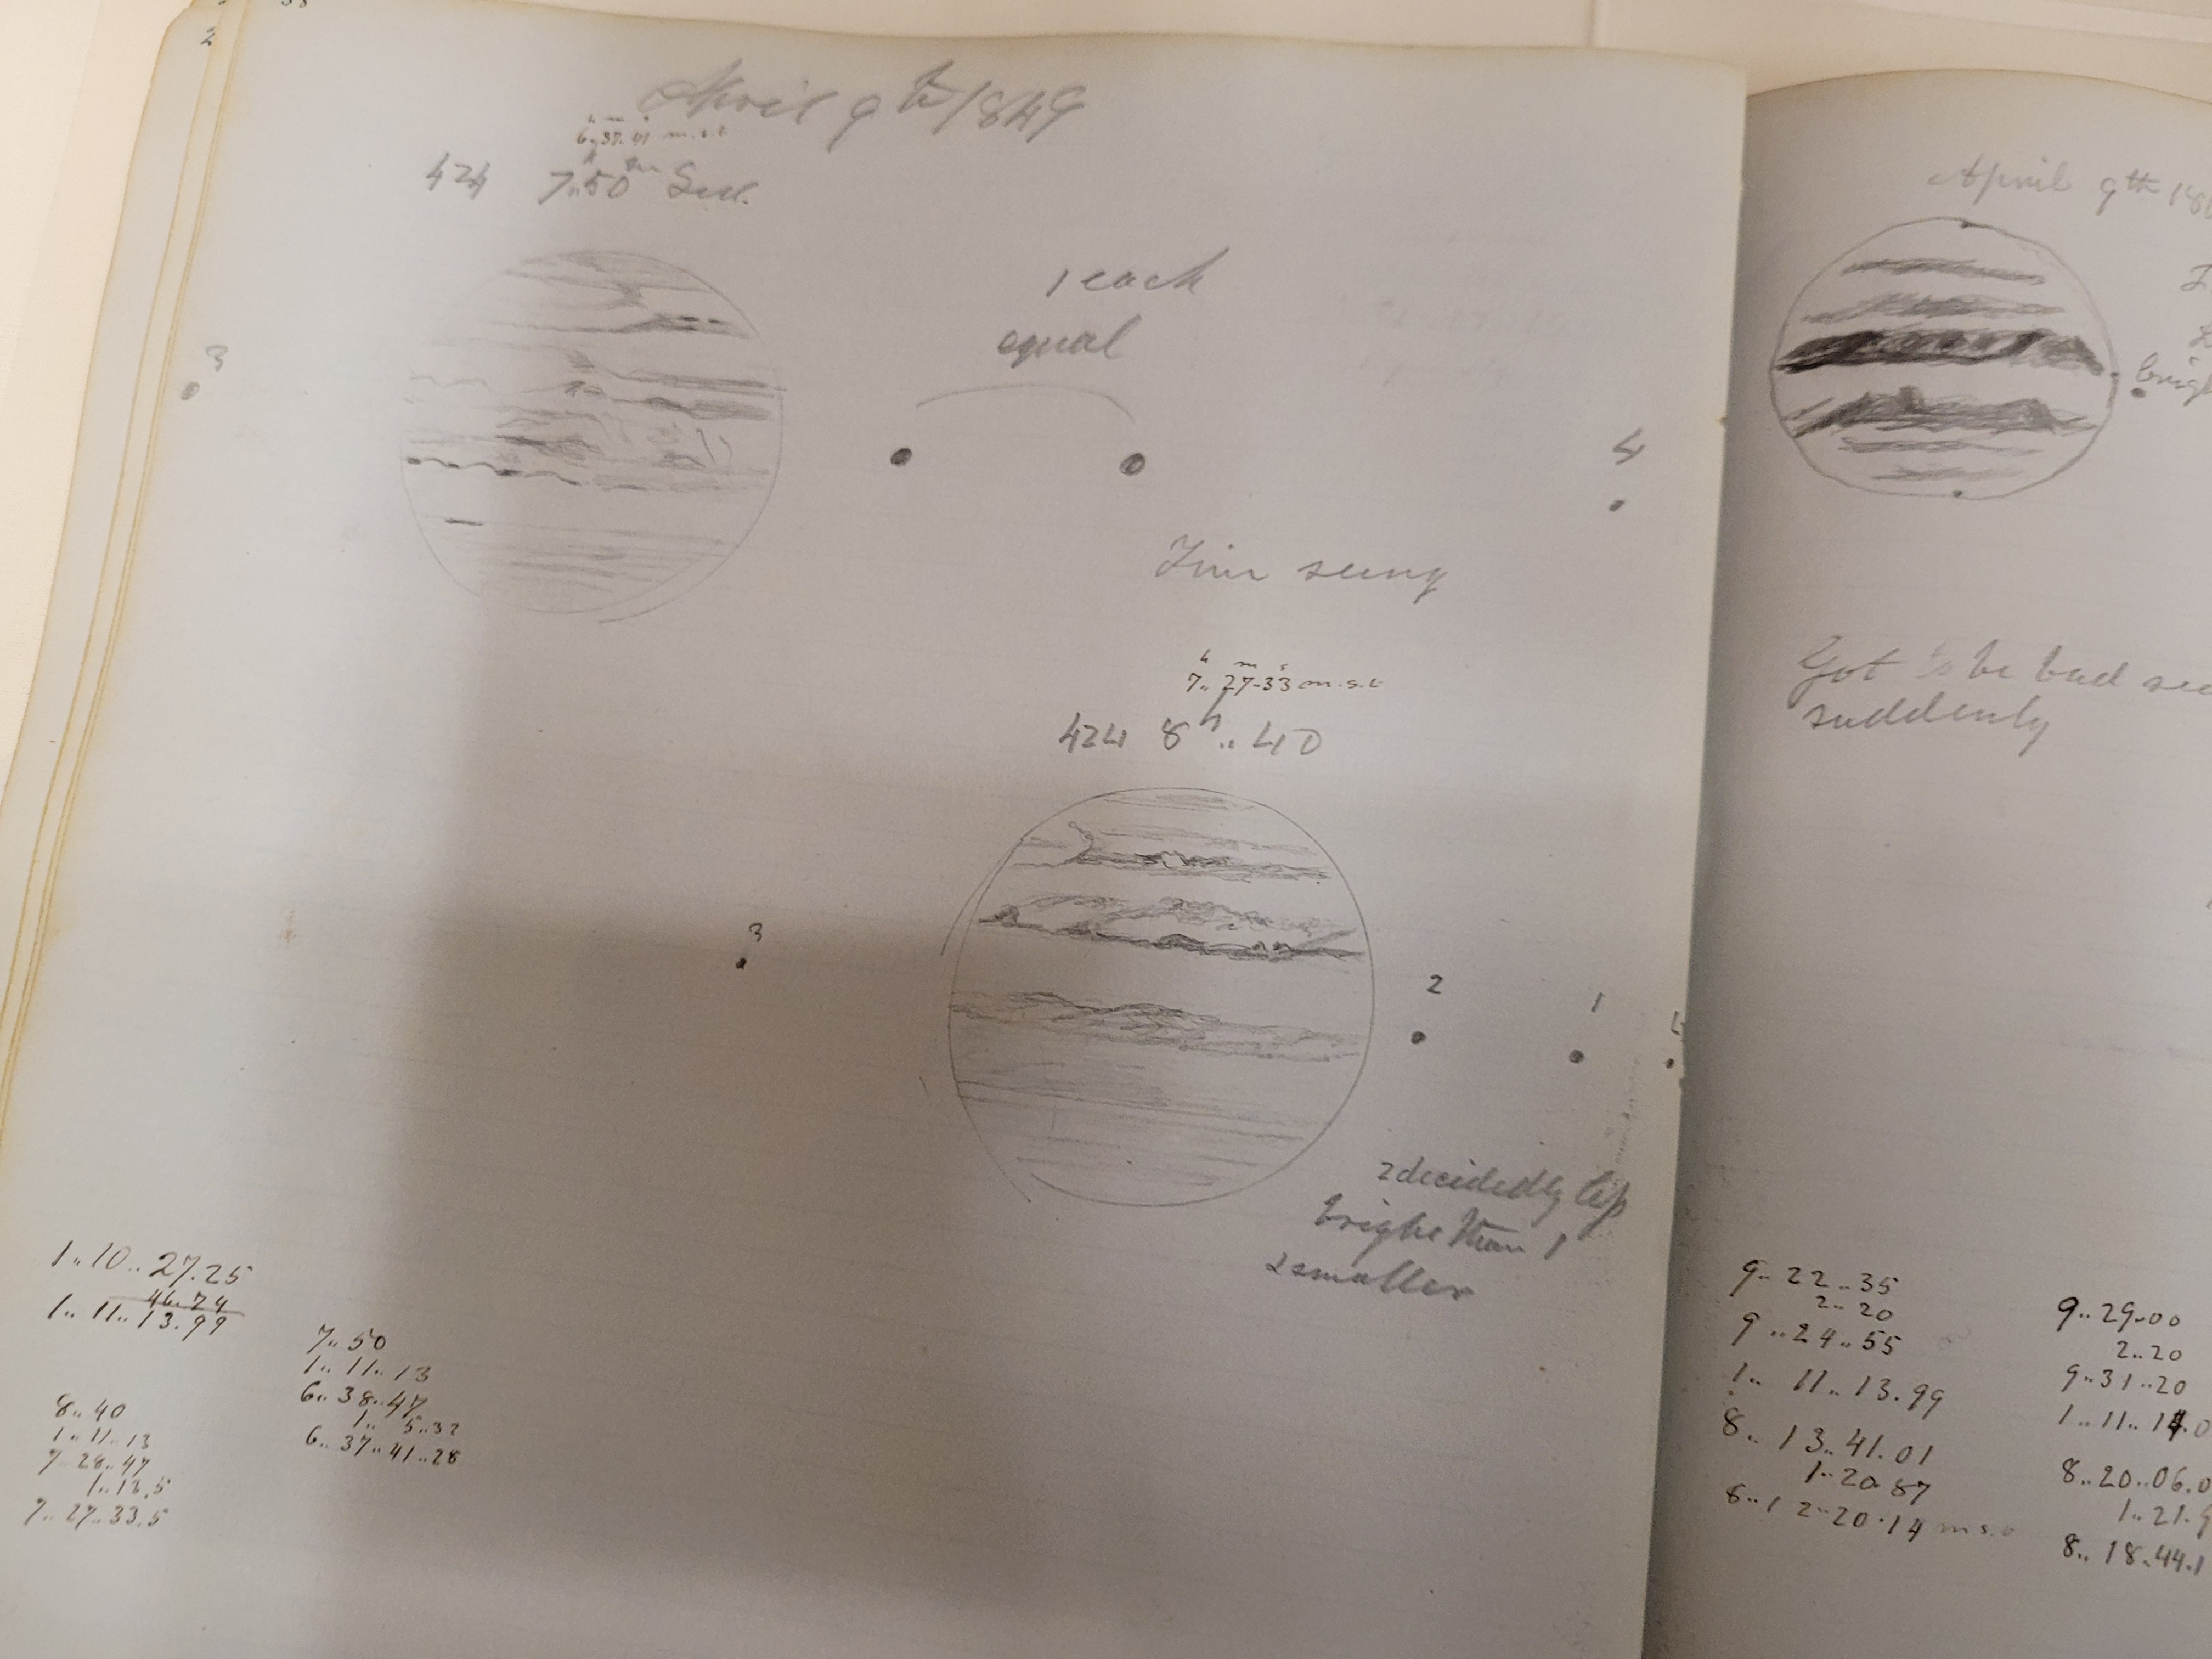 38
2
April 9th 1849
h m s
6..37.41 m.s.t
424 7h..50m Sid.
1 each
equal
3
4
Fine seeing
h m s
7.. 27-33 m.s.t
424 8h..40
3
2
1
2 decidedly less
bright than 1
2 smaller
1..10..27.25
46.74
1.. 11.. 13.99
7..50
1.. 11.. 13
6.. 38..47
1.. 5..32
6.. 37..41..28
8..40
1..11..13
7 28..47
1..13.5
7..27..33.5
April 9th 18
Got to be bad see
suddenly
9.. 22..35
2..20
9..24..55
1.. 11..13.99
8.. 13..41.01
1..20.87
8..12..20.14 m s.
9..29..00
2..20
9..31..20
1..11..14.0
8..20..06.0
1..21.
8.. 18..44.1